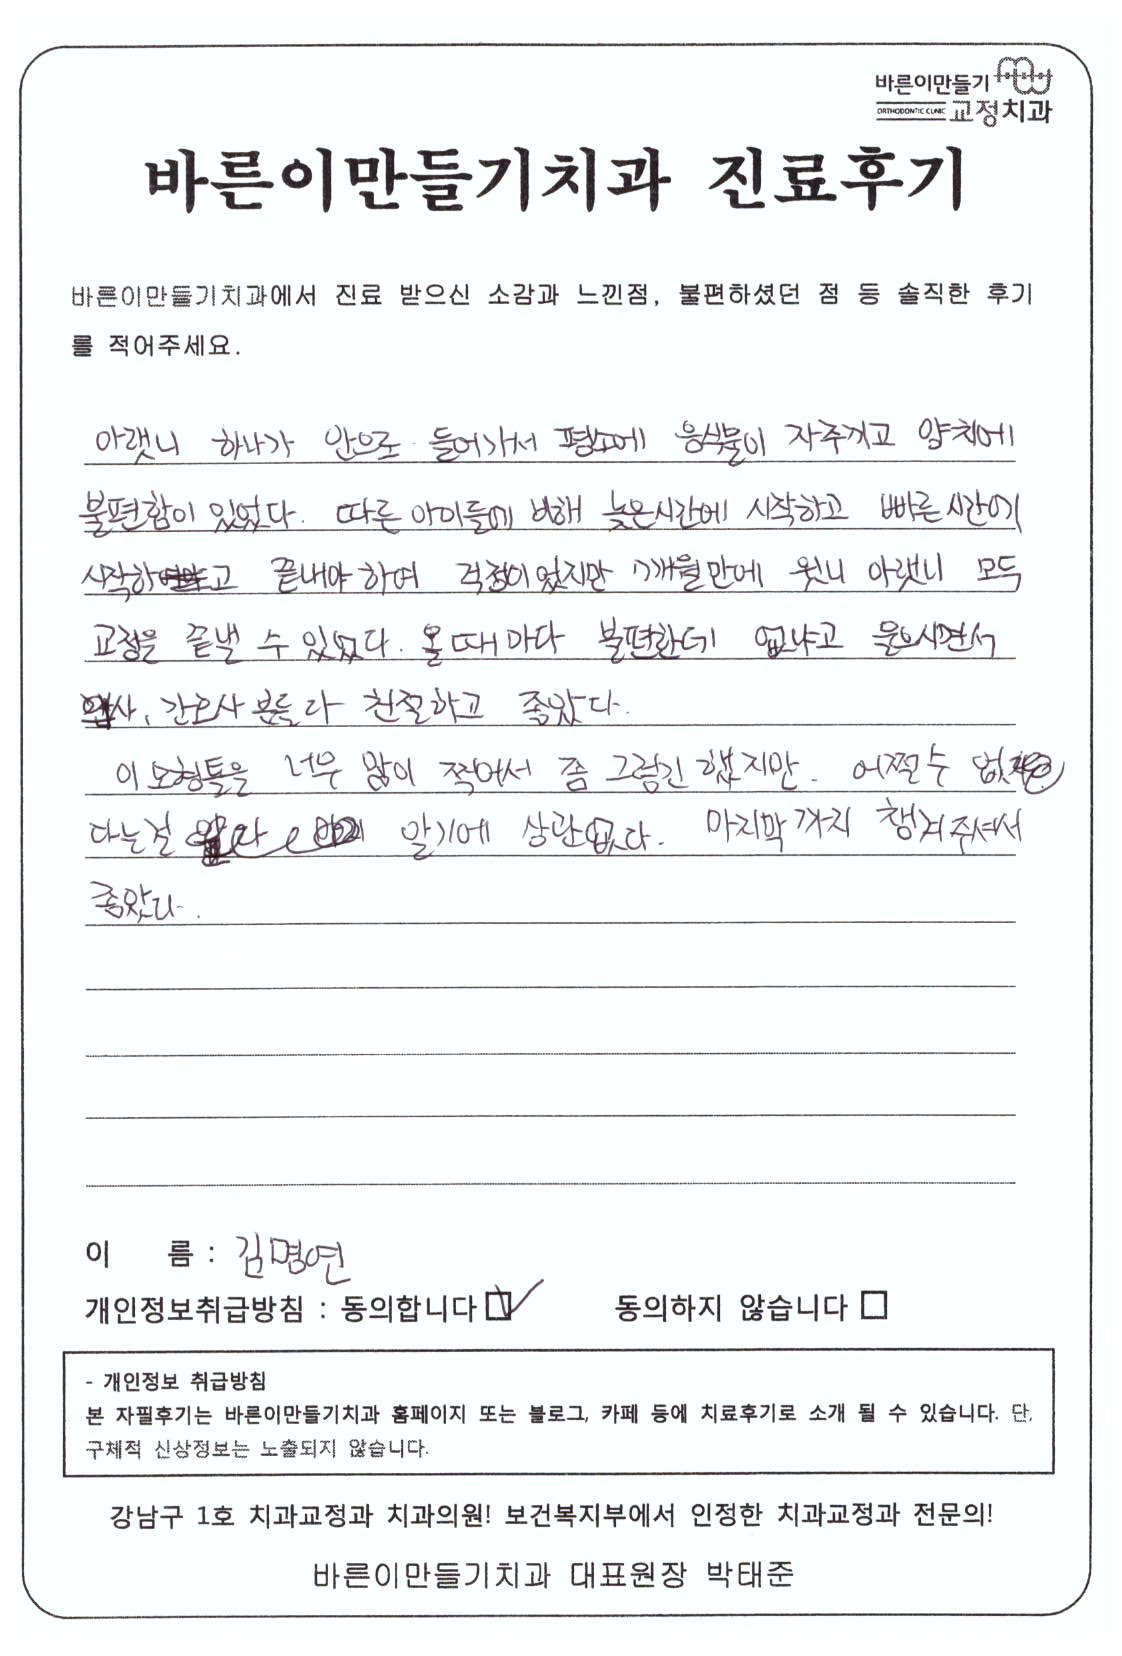 바른이만들기
ORTHODONTIC CLINIC 교정치과
바른이만들기치과 진료후기
바른이만들기치과에서 진료 받으신 소감과 느낀점, 불편하셨던 점 등 솔직한 후기
를 적어주세요.
아랫니 하나가 안으로 들어가서 평소에 음식물이 자주끼고 양치에
불편함이 있었다. 따른 아이들에 비해 늦은시간에 시작하고 빠른시간에
시작하고 끝내야 하여 걱정이었지만 7개월만에 윗니 아랫니 모두
교정을 끝낼 수 있었다. 올 때 마다 불편한데 없냐고 물으시면서
간호사 분들 다 친절하고 좋았다.
이 모형틀을 너무 많이 찍어서 좀 그렇긴 했지만. 어쩔 수 없
다는걸 알기에 상관없다. 마지막까지 챙겨주셔서
좋았다.
이 름 : 김명연
개인정보취급방침 : 동의합니다 동의하지 않습니다
- 개인정보 취급방침
본 자필후기는 바른이만들기치과 홈페이지 또는 블로그, 카페 등에 치료후기로 소개 될 수 있습니다. 단,
구체적 신상정보는 노출되지 않습니다.
강남구 1호 치과교정과 치과의원! 보건복지부에서 인정한 치과교정과 전문의!
바른이만들기치과 대표원장 박태준